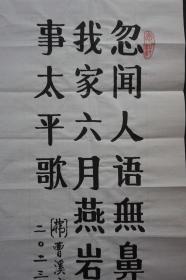 忽闻人语無鼻
我家六月燕岩
事太平歌
曹溪
二〇二三